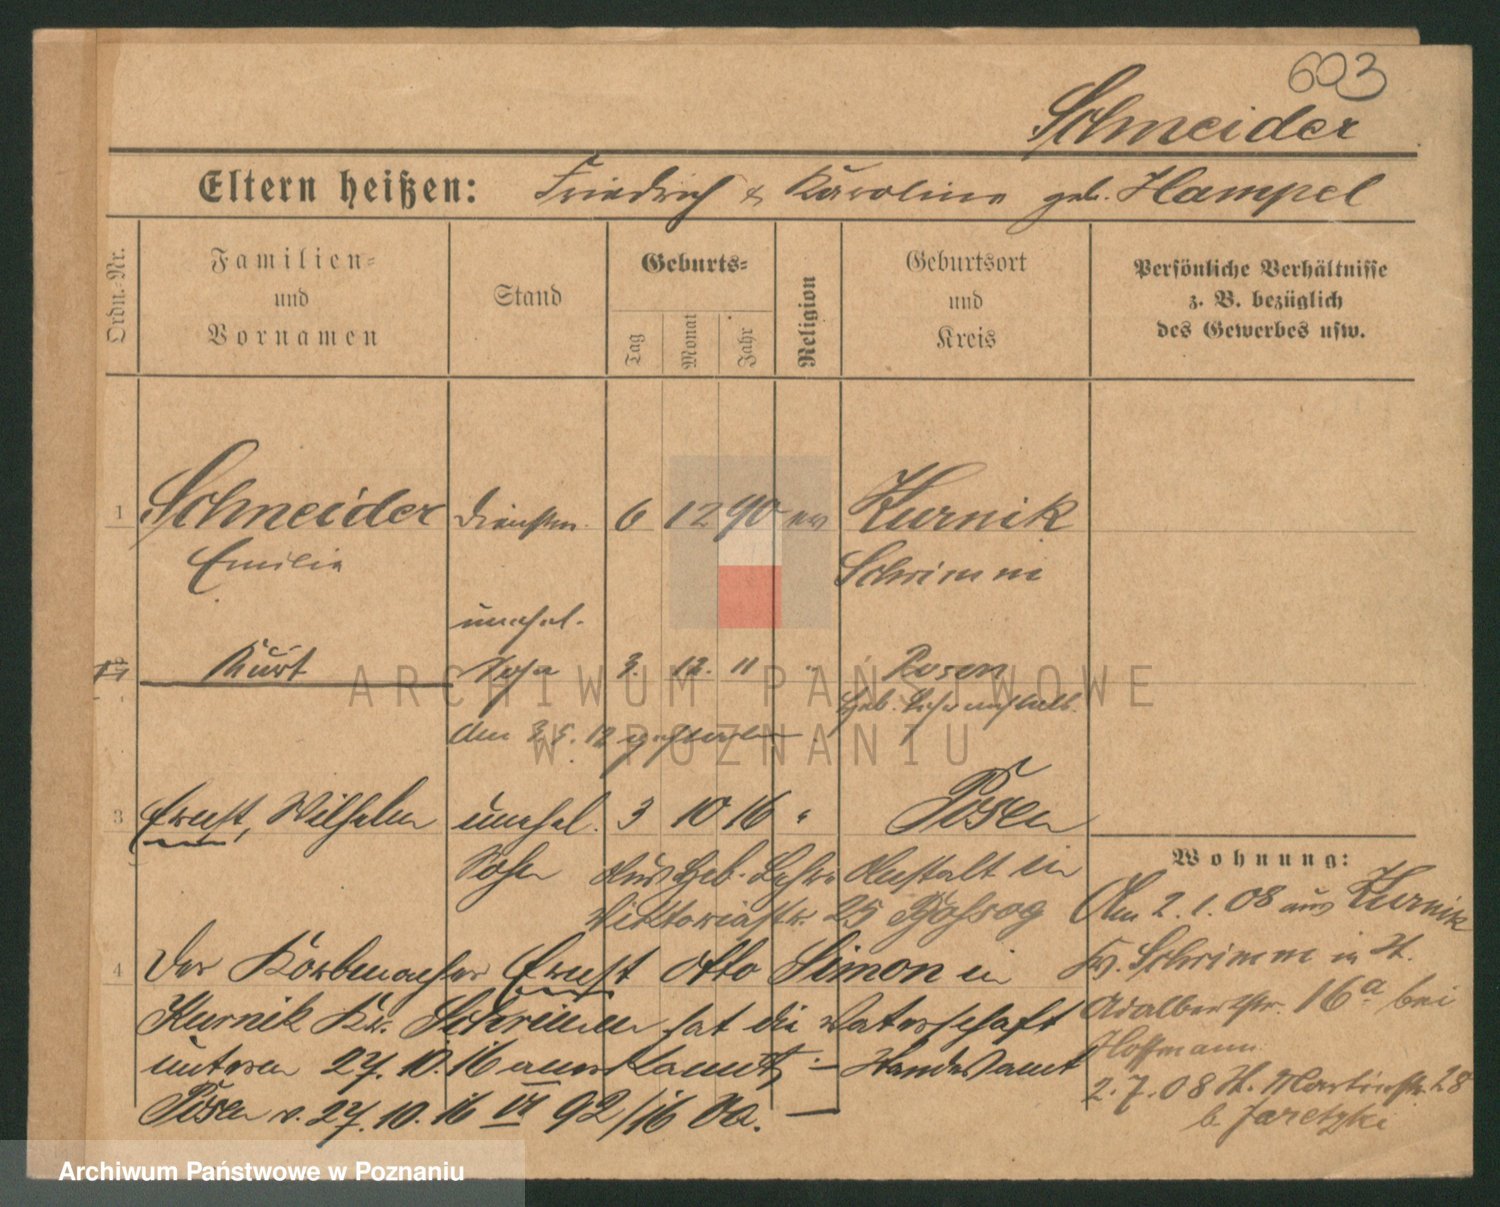 603
Schneider
Eltern heißen: Friedrich & Karoline geb. Hampel
Ordn.-Nr.
Familien-
und
Vornamen
Stand
Geburts-
Tag
Monat
Jahr
Religion
Geburtsort
und
Kreis
Persönliche Verhältnisse
z. B. bezüglich
des Gewerbes usw.
1 Schneider 6 12 90 ev Kurnik
Emilie Schrimm
unehel.
Kurt Sohn 3. 12. 11 " Posen
Heb. Lehranstalt.
am 3.5.12 gestorben
3 Ernst, Wilhelm unehel. 3 10 16 " Posen
Sohn Aus Heb. Lehr Anstalt in
Viktoriastr. 25
4 Der Korbmacher Ernst Otto Simon in
Kurnik Kr. Schrimm hat die Vaterschaft
unterm 27.10.16 anerkannt, – Standesamt
Posen v. 27.10.16 VI 92/16
Wohnung:
Am 2.1.08 aus Kurnik
Kr. Schrimm in H.
Adalbertstr. 16a bei
Hoffmann
2.7.08 H. Martinstr. 28
b. Jaretzki
ARCHIWUM PAŃSTWOWE
W POZNANIU
Archiwum Państwowe w Poznaniu